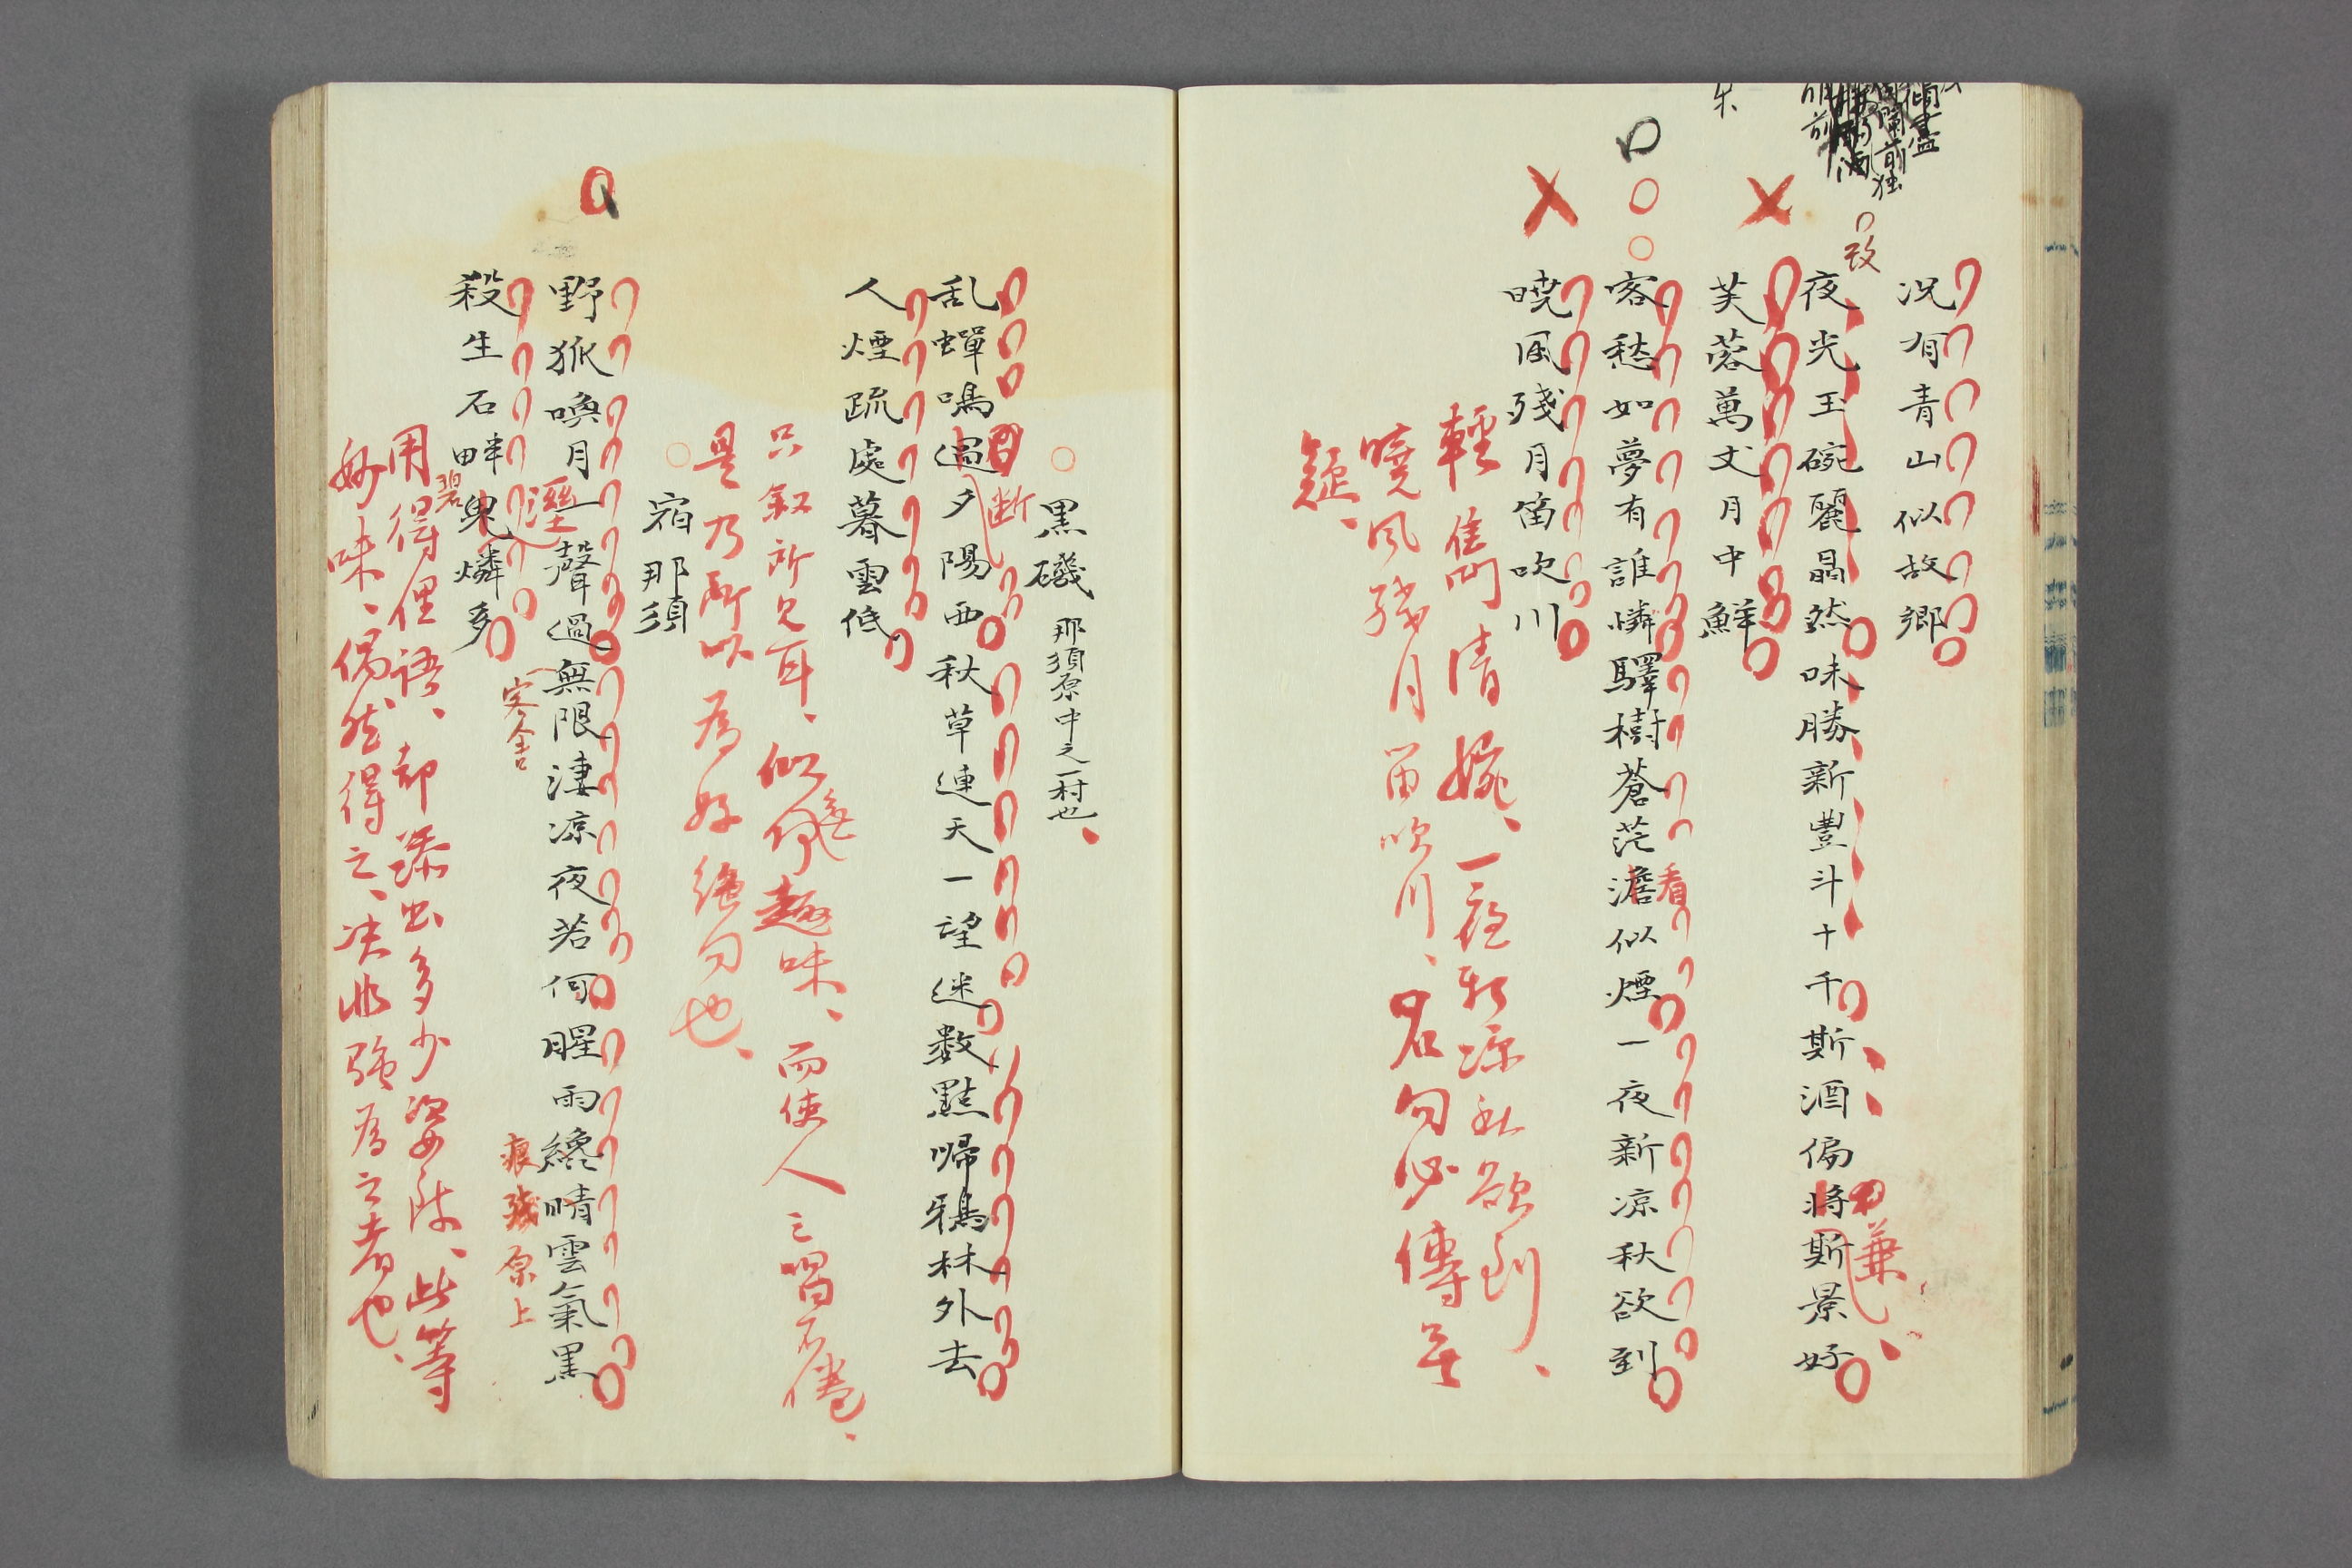 況有青山似故郷
改
夜光玉碗麗晶然味勝新豐斗十千斯酒偏將斯景好
兼
芙蓉萬丈月中鮮
客愁如夢有誰憐驛樹蒼茫澹似煙一夜新凉秋欲到
看
暁風殘月笛吹川
輕雋清婉、一夜新凉秋欲到、
曉風殘月笛吹川、名句必傳無
疑、
黒磯 那須原中之一村也、
乱蟬鳴過夕陽西秋草連天一望迷数點帰鴉林外去
断
人煙疏處暮雲低
只叙所見耳、似無何趣味、而使人三唱不倦、
是乃所以為好絶句也、
宿那須
野狐喚月一聲過無限凄凉夜若何腥雨纔晴雲氣黒
痕殘原上
殺生石畔鬼燐多
碧
用得俚語、却添出多少姿致、此等
妙味、偶然得之、决非強為之者也、